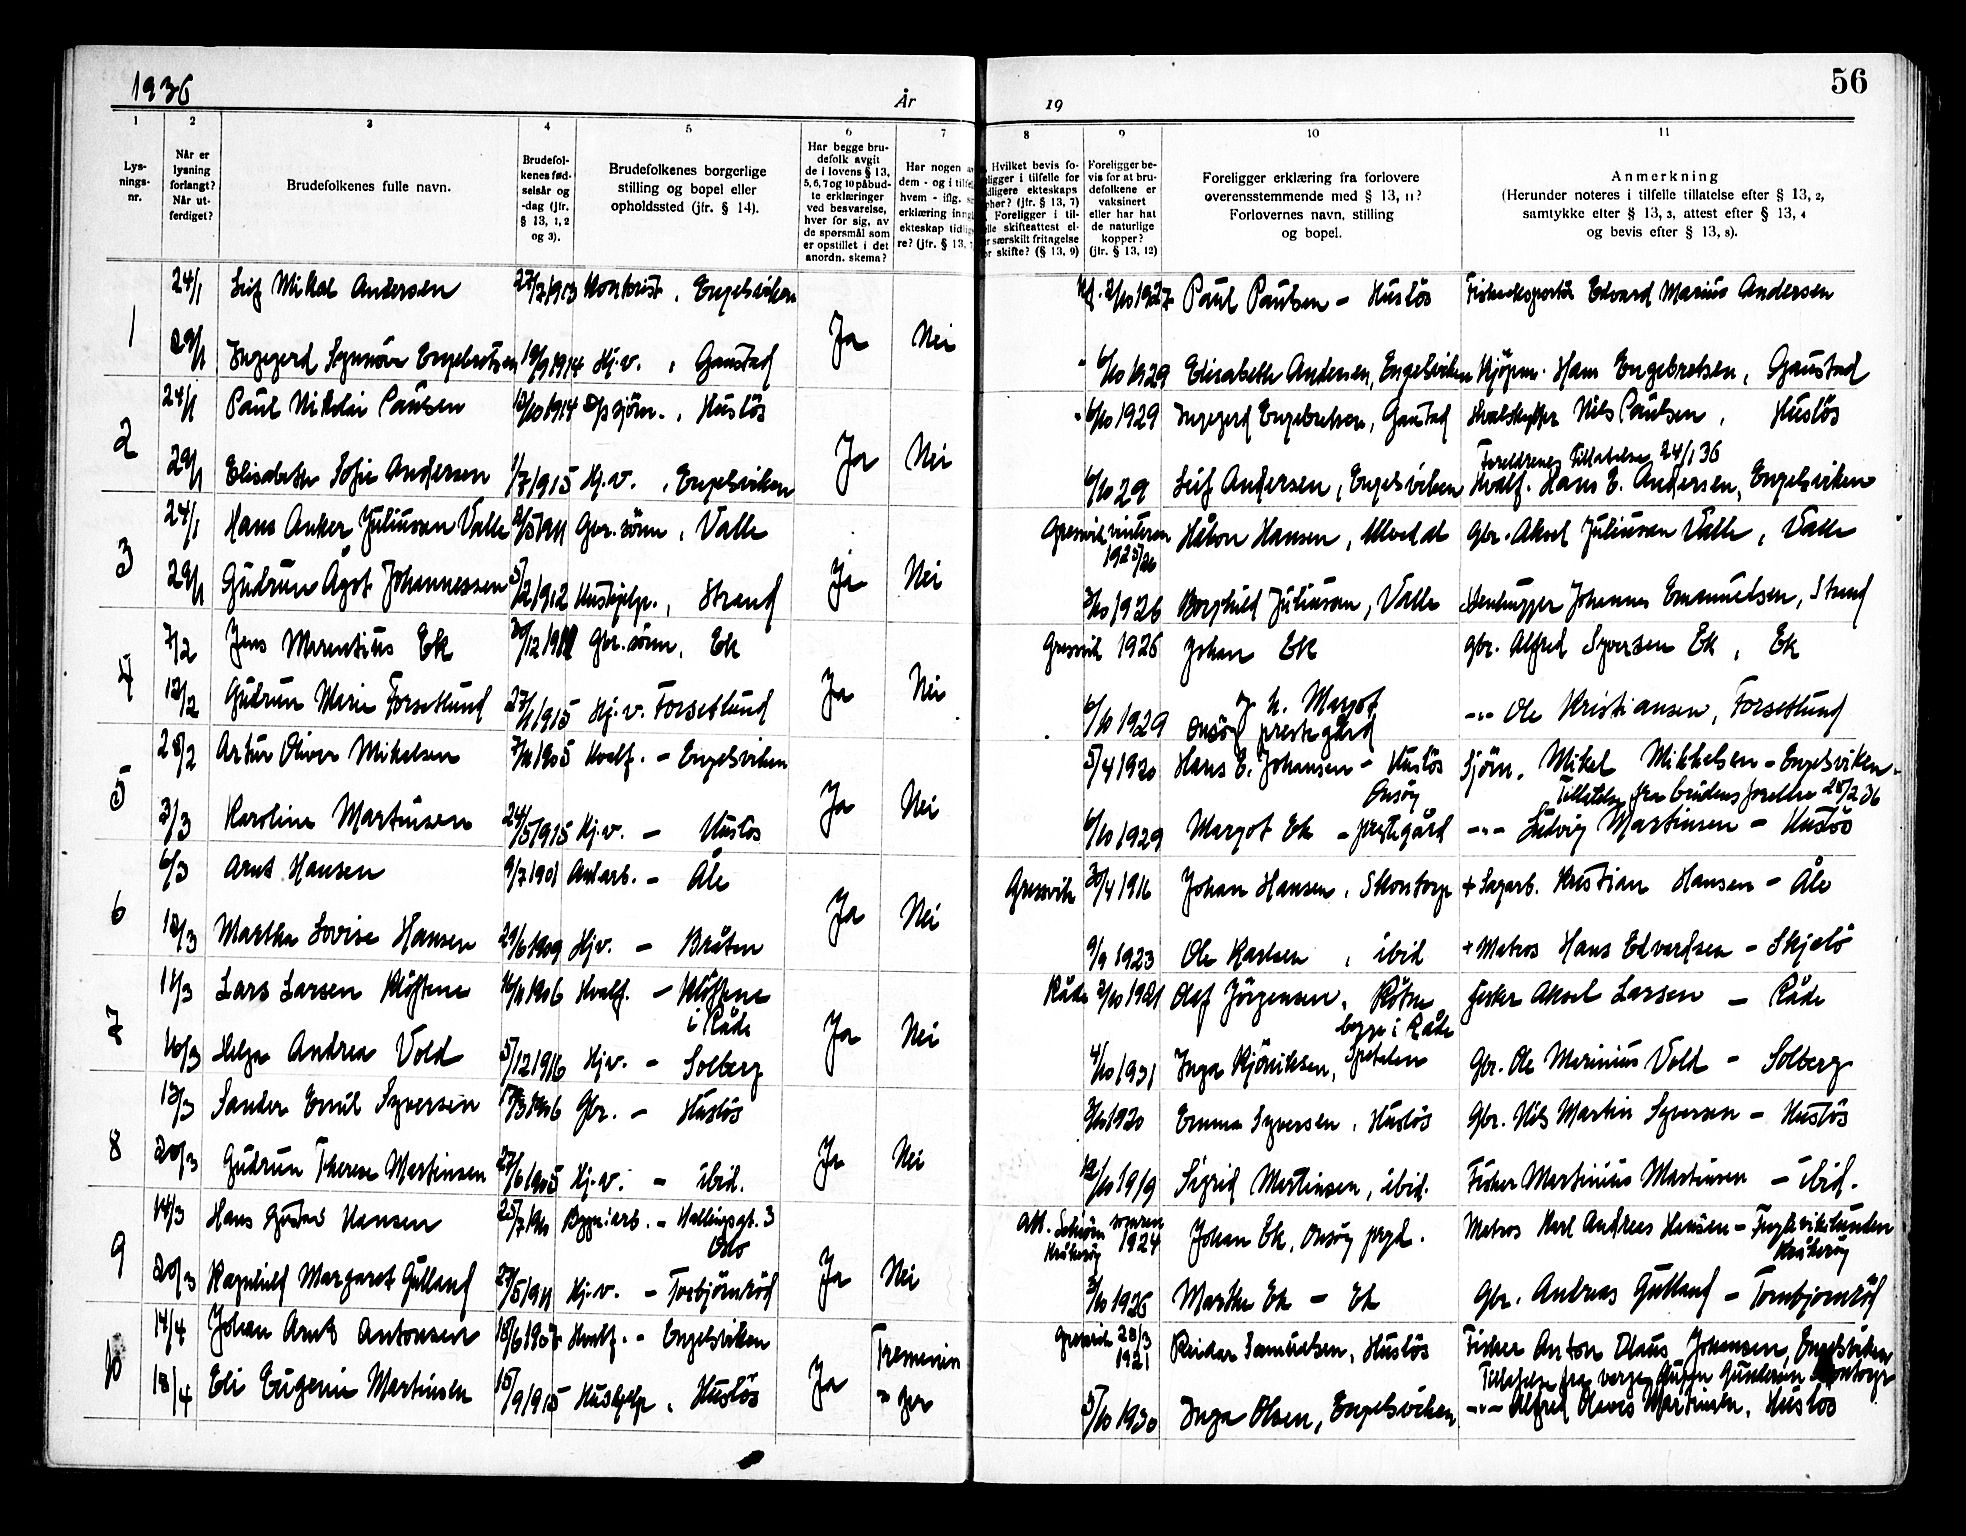 1936
År
19
56
1
2
3
4
5
6
7
8
9
10
11
Lys-
nings-
nr.
Når er
lysning
forlangt?
Når ut-
ferdiget?
Brudefolkenes fulle navn.
Brudefol-
kenes fød-
selsår og
-dag (jfr.
§ 13, 1, 2
og 3).
Brudefolkenes borgerlige
stilling og bopel eller
opholdssted (jfr. § 14).
Har begge bru-
defolk avgit
de i lovens § 13,
5, 6, 7 og 10 påbud-
te erklæringer
ved besvarelse,
hver for sig, av
de spørsmål som
er opstillet i det
anordn. skema?
Har nogen
dem - og i
hvem - iflg.
erklæring
ekteskap
re? (jfr. § 13,
Hvilket bevis fo-
ligger i tilfelle for
ekteskaps
(jfr. § 13, 7)
Foreligger i til-
skifteattest el-
særskilt fritagelse
skifte? (§ 13, 9)
Foreligger be-
vis for at bru-
defolkene er
vaksinert
eller har hat
de naturlige
kopper?
(jfr. § 13, 12)
Foreligger erklæring fra forlovere
overensstemmende med § 13, 11?
Forlovernes navn, stilling
og bopel.
Anmerkning
(Herunder noteres i tilfelle tillatelse efter § 13, 2,
samtykke efter § 13, 3, attest efter § 13, 4
og bevis efter § 13, 8).
24/1 Leif Mikal Andersen 27/7 1913 Kontorist, Engelsviken 2/10 1927 Paul Paulsen - Husløs Edvard Marius Andersen
1 Ja Nei
29/1 Ingegerd Synnöve Engebretsen 19/9 1914 Hj.v. , Gaustad " 6/10 1929 Elisabeth Andersen, Engelsviken Kjöpm. Hans Engebretsen, Gaustad
24/1 Paul Nikolai Paulsen 13/10 1914 sjöm. , Husløs " 6/10 1929 Ingegerd Engebretsen, Gaustad Nils Paulsen, Husløs
2 Ja Nei
Foreldrenes Tillatelse 24/1 36
29/1 Elisabeth Sofie Andersen 1/7 1915 Hj.v. , Engelsviken 6/10 29 Leif Andersen, Engelsviken Hvalf. Hans E. Andersen, Engelsviken
24/1 Hans Anker Juliussen Valle Gbr. sönn, Valle Gressvik vinteren Håkon Hansen, Gbr. Aksel Juliussen Valle, Valle
1925/26
3 Ja Nei
29/1 Gudrun Ågot Johannessen 5/2 1912 Hushjelp, Strand 3/10 1926 Borghild Juliussen, Valle Stenhugger Johannes Emanuelsen, Strand
7/2 Jens Marentius Ek Gbr. sönn, Ek Gressvik 1926 Johan Ek Gbr. Alfred Syversen Ek, Ek
4 Ja Nei
13/2 Gudrun Marie Forsetlund 27/11 1915 Hj.v. Forsetlund 6/10 1929 Margot -"- Ole Kristiansen, Forsetlund
Onsöy prestegård
28/2 Artur Oliver Mikelsen Hvalf. - Engelsviken 5/4 1920 Hans E. Johansen - Husløs Sjöm. Mikal Mikkelsen - Engelsviken
5 Ja Nei
Onsöy Tillatelse fra brudens foreldre 28/2 36
3/3 Karoline Martinsen 24/5 1915 Hj.v. - Husløs 6/10 1929 Margot Ek - prestegård -"- Ludvig Martinsen - Husløs
6/3 Arnt Hansen 9/7 1901 Anl.arb. - Åle Gressvik 30/4 1916 Johan Hansen, Skontorp + Sagarb. Kristian Hansen - Åle
6 Ja Nei
13/3 Martha Lovise Hansen 29/6 1909 Hj.v. - Bråten 9/9 1923 Ole Karlsen, ibid + Matros Hans Edvardsen - Skjelö
11/3 Lars Larsen Klöftene 16/11 1906 Hvalf. - Klöftene Råde 2/10 1921 Olaf Jörgensen, Fisker Aksel Larsen - Råde
i Råde
begge i Råde
7 Ja Nei
16/3 Helga Andrea Vold 5/12 1916 Hj.v. - Solberg 4/10 1931 Inga Kjöniksen, Spetalen Gbr. Ole Marinius Vold - Solberg
13/3 Sander Emil Syversen Gbr. - Husløs 3/10 1920 Emma Syversen, Husløs Gbr. Nils Martin Syversen - Husløs
8 Ja Nei
20/3 Gudrun Therese Martinsen 27/6 1905 Hj.v. - ibid. 12/10 1919 Sigrid Martinsen, ibid. Fisker Martinius Martinsen - ibid.
14/3 Hans Gustav Hansen Bygn.arb. - Hallingsgt. 3 sommeren Johan Ek, Onsöy prgd. Matros Karl Andreas Hansen - Fuglevikslunden
Oslo Kråkeröy 1924 Kråkeröy
9 Ja Nei
20/3 Ragnhild Margaret Gulland 27/5 1911 Hj.v. - Torbjörnröd 3/10 1926 Marthe Ek - Ek Gbr. Andreas Gulland - Tornbjörnröd
14/4 Johan Arnt Antonsen 18/6 1907 Hvalf. - Engelsviken Gressvik 28/3 Reidar Samuelsen, Husløs Fisker Anton Olaus Johansen, Engelsviken
1921
10 Ja Tremenin-
ger
Tillatelse fra vergen
18/4 Eli Eugenie Martinsen 15/9 1915 Hushjelp, Husløs 5/10 1930 Inga Olsen, Engelsviken -"- Alfred Martinsen, Husløs